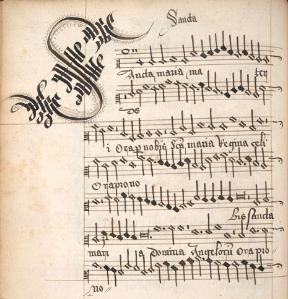 Sancta
ancta maria ma
i Ora p nobis Scā maria Regina celi
Ora pro no
Bis Sancta
mari a Domina Angelorū Ora p io
no